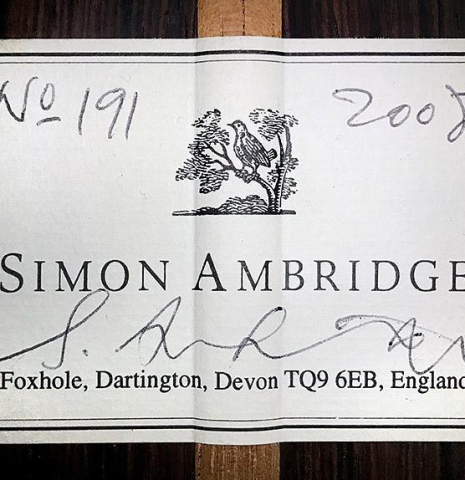 No 191
2008
SIMON AMBRIDGE
Foxhole, Dartington, Devon TQ9 6EB, England